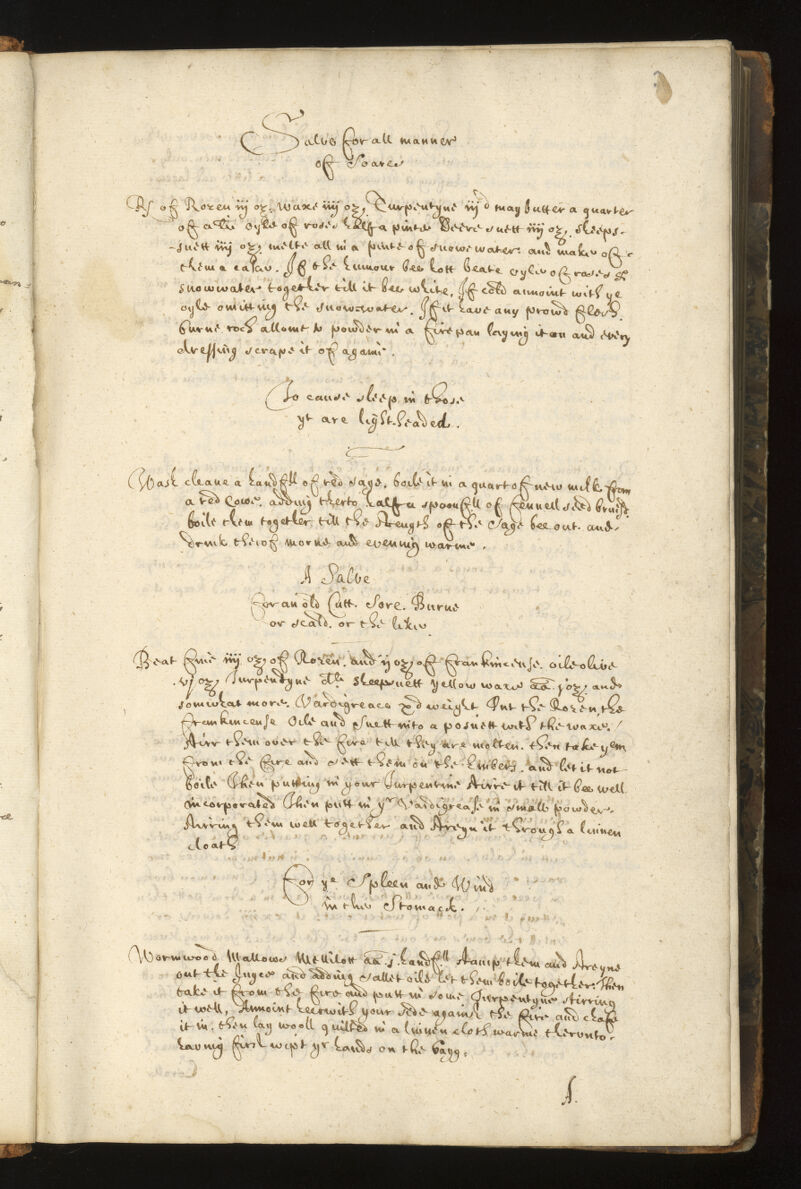 Salve for all manner
of Soares
Rs of Rozen iiij oz, waxe iiij oz, Turpentyne iij d may butter a quarter
of a li: oyle of roses halfe a pinte Deere suett iiij oz, sheeps-
-suett iiij oz, melte all in a pinte of snowe water, and make of-
them a salve. If the humour bee hott beate oyle of roses &
snowwater together till it bee white, If cold annoint with ye
oyle omitting the snowewater. If it have any prowd flesh.
burne roch allome to powder in a firepan laying it on and every
dressing scrape it of againe.
To cause sleep in those
yt are light-headed.
Wash cleane a handfll of red sage, boile it in a quart of new milk from
a red Cowe, adding therto halfe a spoonfll of fennell seed bruised
boile them together till the strength of the Sage bee out. and
drink therof morne and evening warme.
A Salve
For an old Cutt. Sore. Burne
or scald, or the like
Beat fine iiij oz, of Rozen, and ij oz, of frankincense. oile olive
vj oz, Turpentyne sheepsuett yellow waxe aa j oz, and
somwhat more. Vardigreace d weight Put the Rozen, the
frankincense Oile and Suett into a posnett with the waxe,
stirr them over the fire till they are molten. then take yem
from the fire and sett them on the Embers, and let it not
boile Then putting in your Turpentine stirre it till it bee well
incorporated Then putt in yr Vardigrease in small powder,
stirring them well together and streyn it through a linnen
cloath
For ye Spleen and Wind
in the Stomack.
Wormwood Mallows Mellilott aa j handfll stamp them and streyne
out the Juyce and adding sallet oile let them boile together: Then
take it from the fire and putt in some Turpentyne stirring
it well, Annoint herewith your side against the fire and chafe
it in, then lay wooll quilted in a linnen cloth warme therunto-
having first wipt yr hands on the bagg.
A.